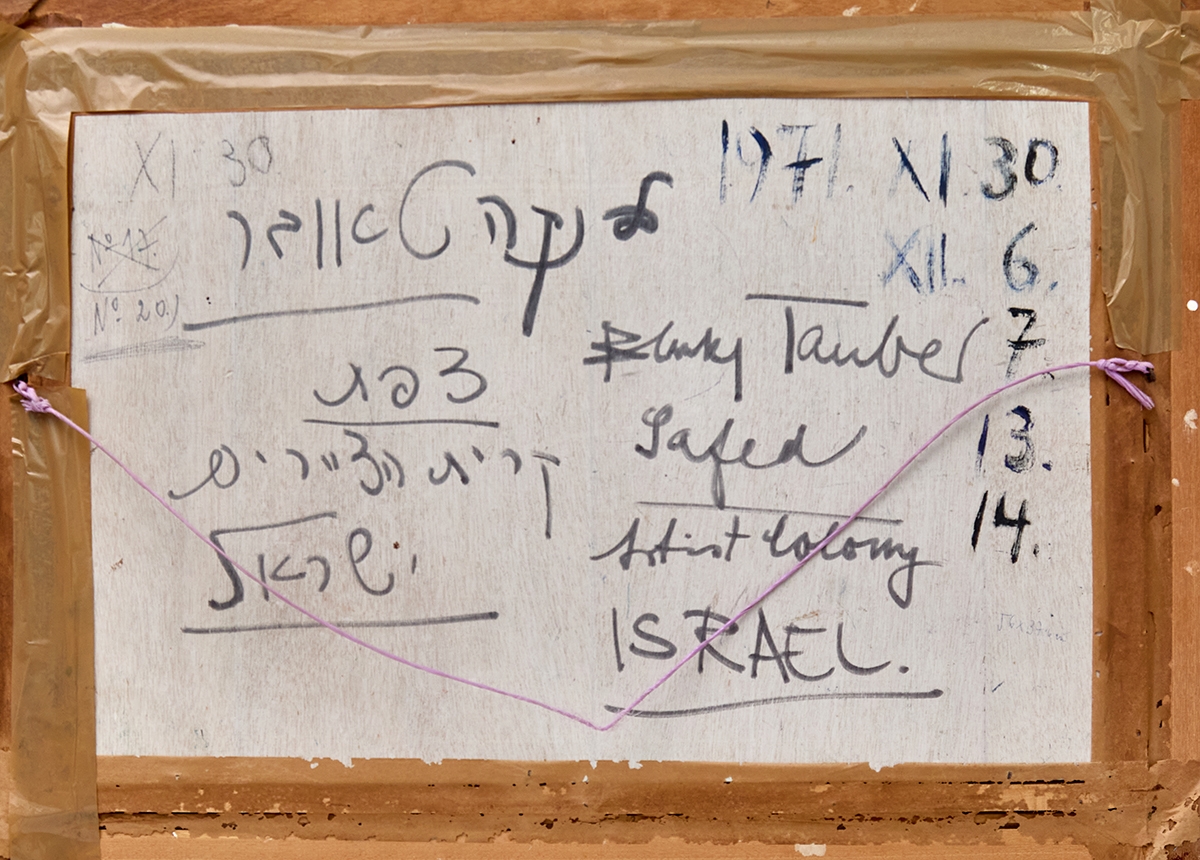 XI 30
Nº 17.
Nº 20.)
בלנקה טאובר
צפת
קרית הציירים
ישראל
1971. XI. 30.
XII. 6.
7.
13.
14.
Blanky Tauber
Safed
Artist Colony
ISRAEL.